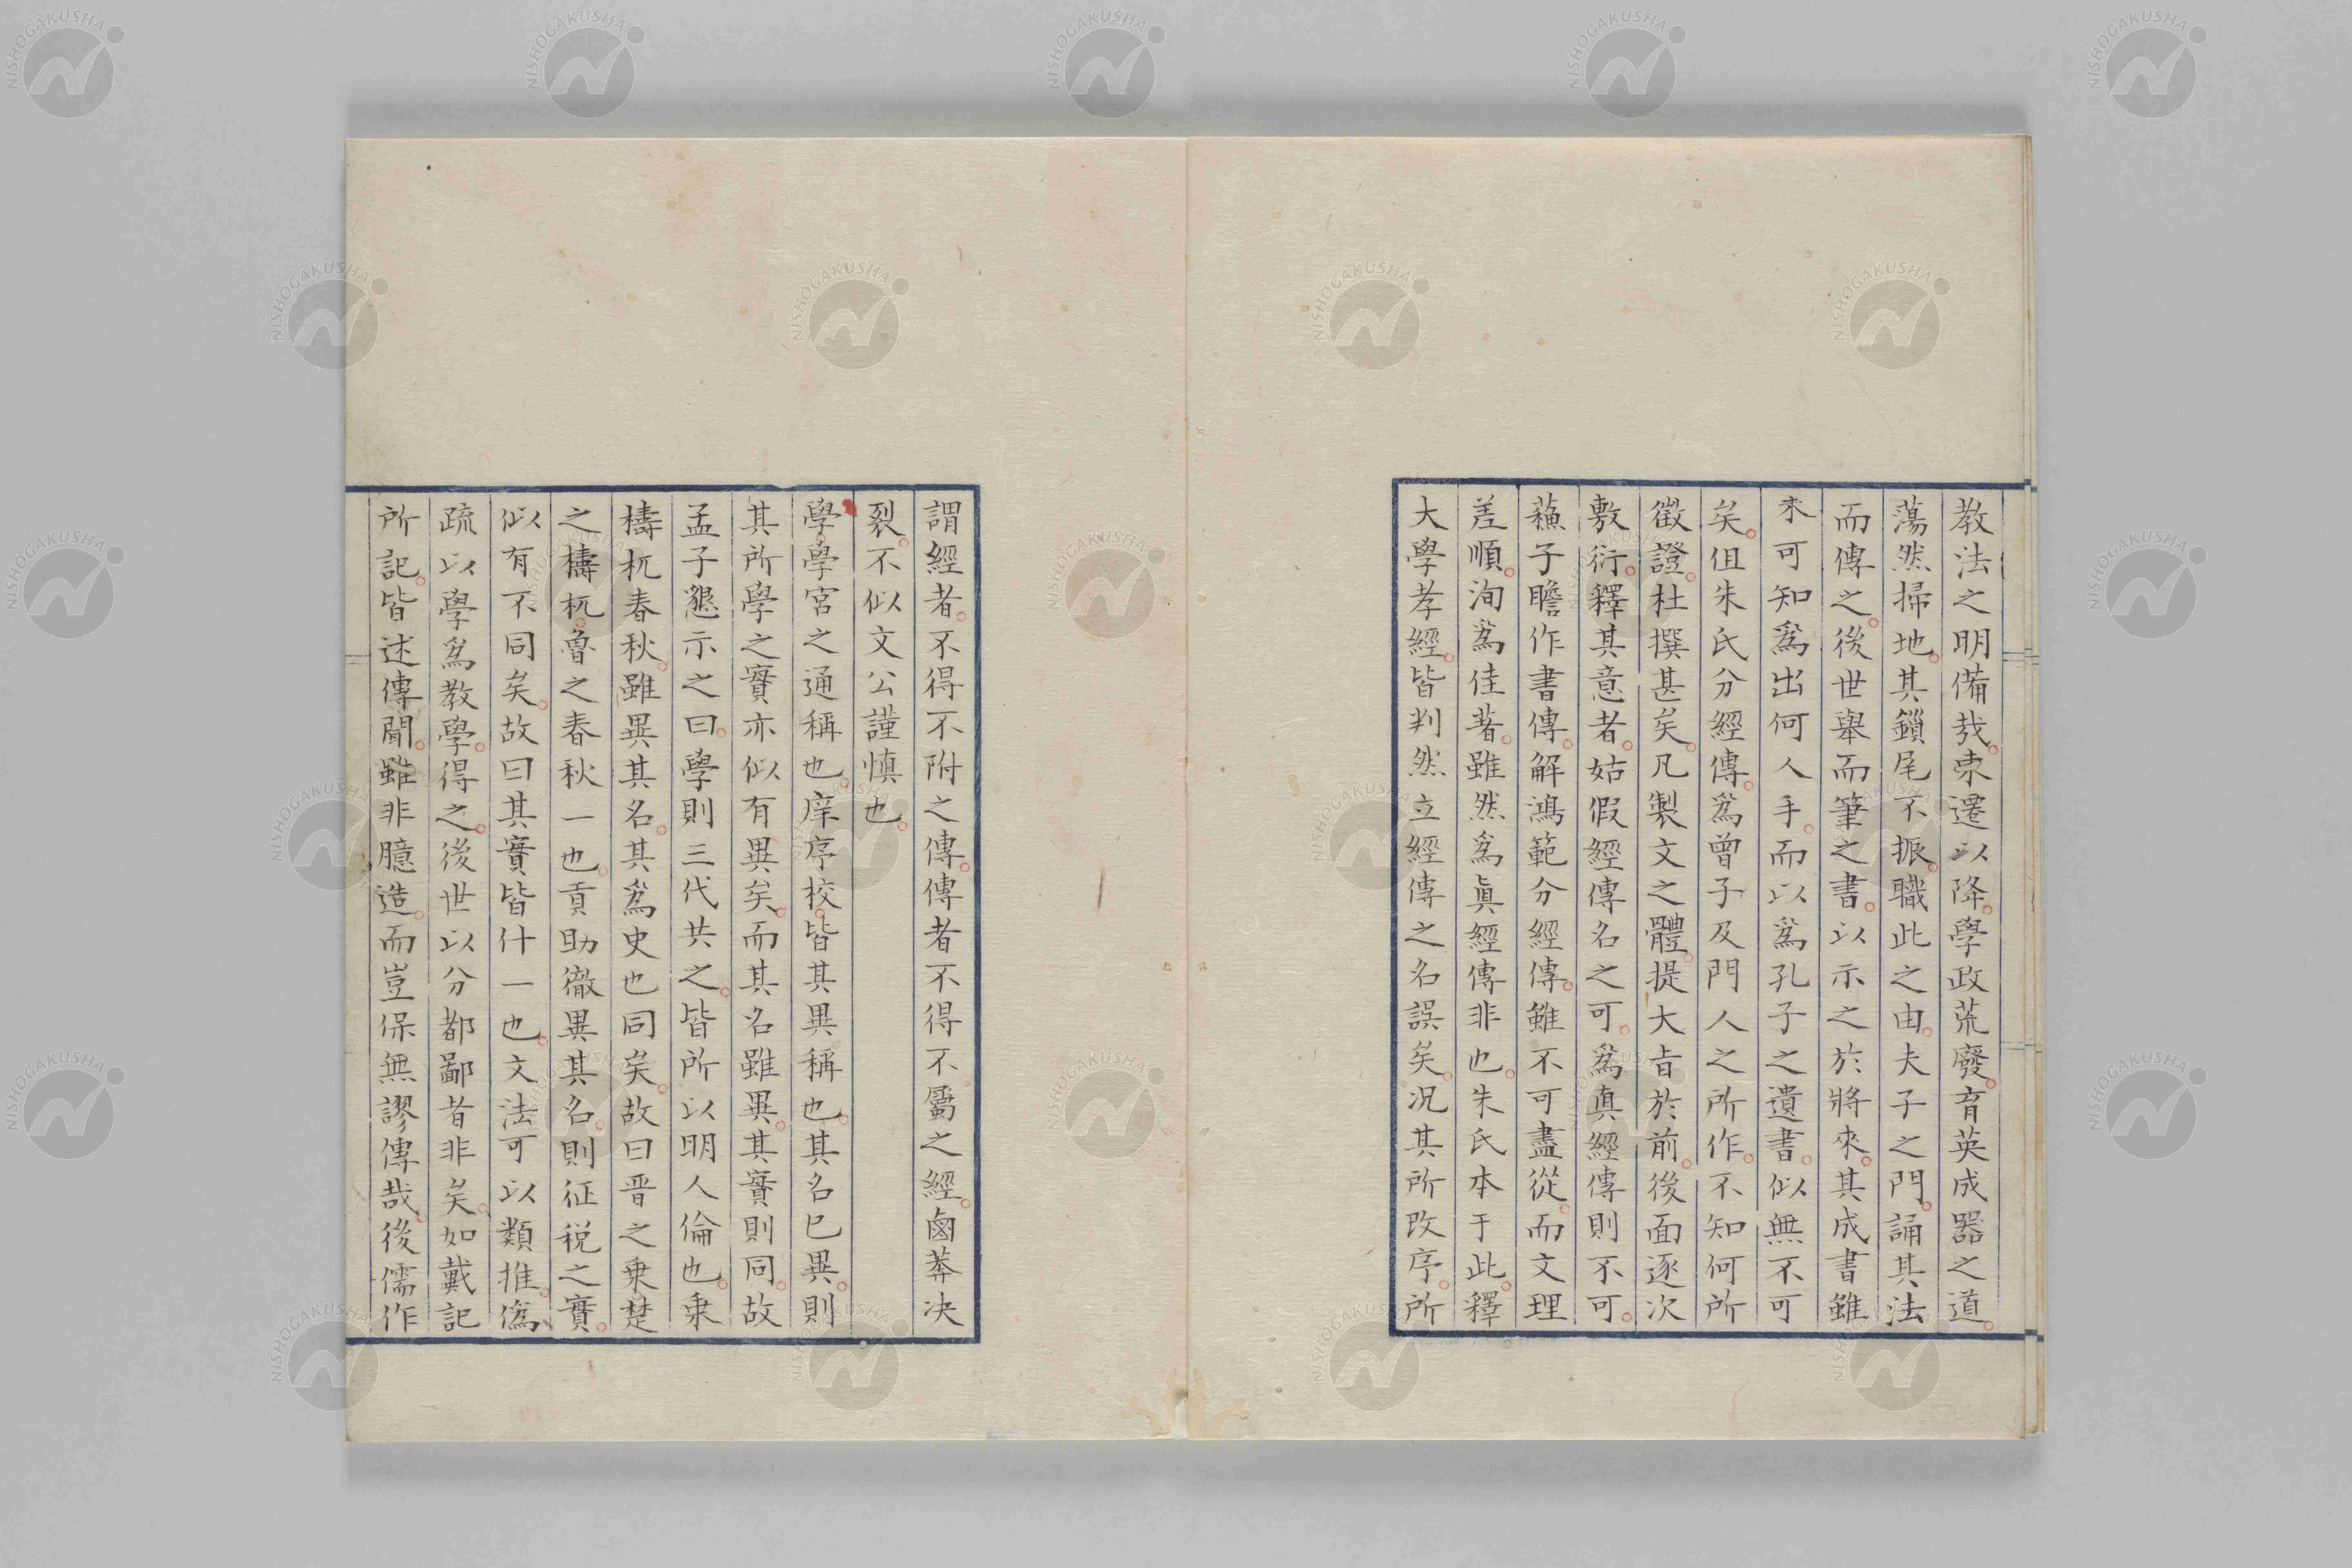 教法之明備哉。東遷以降。學政荒廢。育英成器之道。
蕩然掃地。其鎖尾不振。職此之由。夫子之門。誦其法
而傳之。後世舉而筆之書。以示之於將來。其成書雖
未可知爲出何人手。而以爲孔子之遺書。似無不可
矣。但朱氏分經傳。爲曾子及門人之所作。不知何所
徵證。杜撰甚矣。凡製文之體。提大旨於前。後面逐次
敷衍。釋其意者。姑假經傳名之可。爲眞經傳則不可。
蘓子瞻作書傳。解鴻範分經傳。雖不可盡從。而文理
差順。洵爲佳著。雖然爲眞經傳非也。朱氏本于此。釋
大學孝經。皆判然立經傳之名誤矣。况其所改序。所
謂經者。不得不附之傳。傳者不得不屬之經。鹵莽决
裂。不似文公謹慎也。
學。學宮之通稱也。庠序校。皆其異稱也。其名已異。則
其所學之實亦似有異矣。而其名雖異。其實則同。故
孟子懇示之曰。學則三代共之。皆所以明人倫也。乗
檮杌春秋。雖異其名。其爲史也同矣。故曰晋之乗。楚
之檮杌。魯之春秋一也。貢助徹異其名。則征税之實。
似有不同矣。故曰其實皆什一也。文法可以類推。僞
疏以學爲教學。得之。後世以分都鄙者非矣。如戴記
所記。皆述傳聞。雖非臆造。而豈保無謬傳哉。後儒作
NISHOGAKUSHA